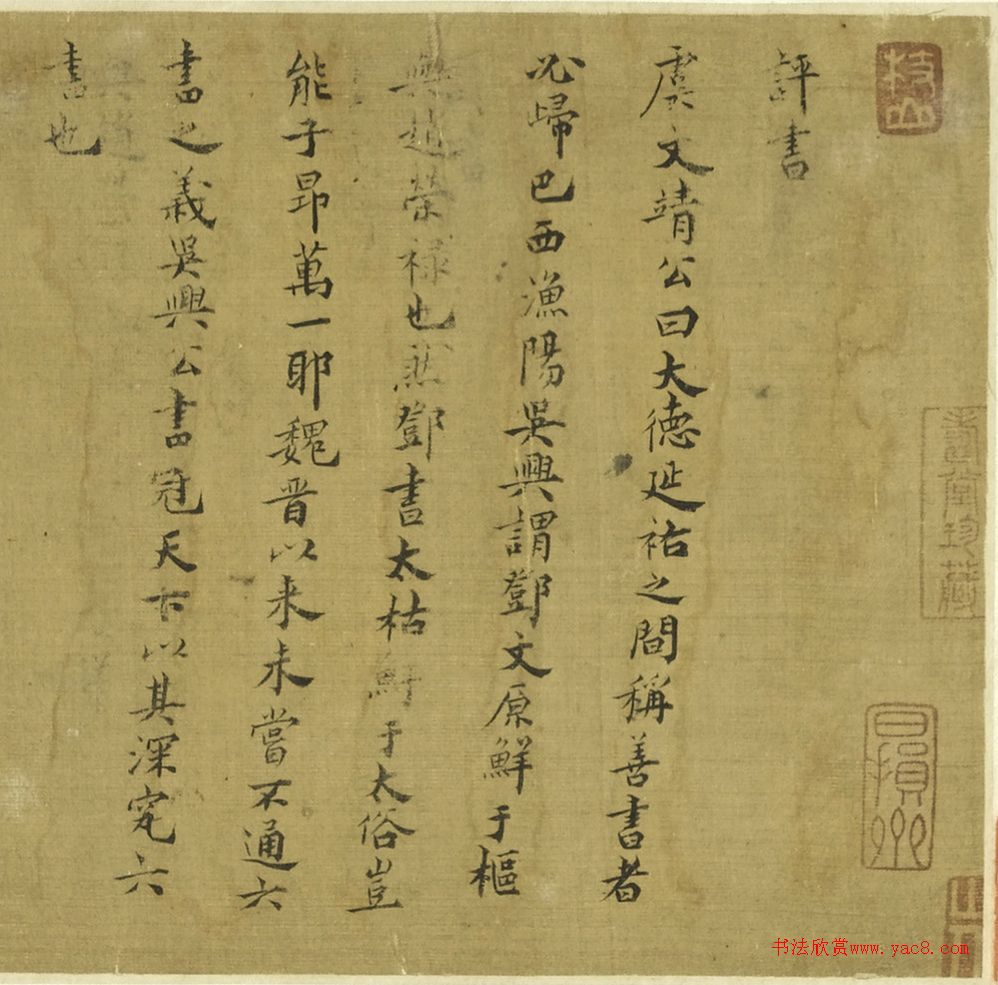 評書
虞文靖公曰大德延祐之間稱善書者
必歸巴西漁陽吳興謂鄧文原鮮于樞
興趙榮祿也然鄧書太枯鮮于太俗豈
能子昂萬一耶魏晋以来未嘗不通六
書之義吳興公書冠天下以其深究六
書也
壽堂珍藏
书法欣赏www.yac8.com